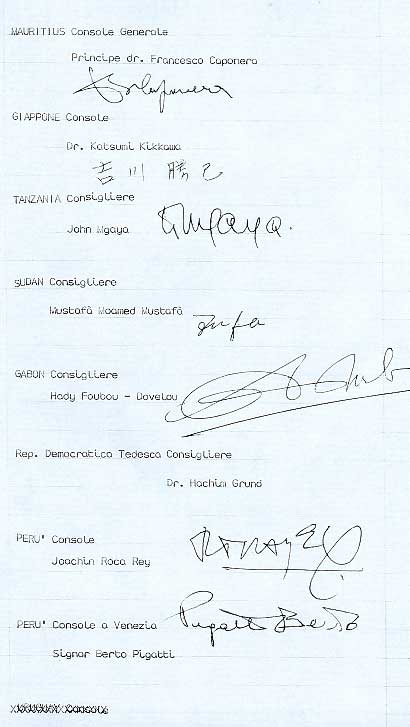 MAURITIUS Console Generale
Principe dr. Francesco Caponera
GIAPPONE Console
Dr. Katsumi Kikkawa
吉川 勝己
TANZANIA Consigliere
John Mgaya
Mgaya.
SUDAN Consigliere
Mustafà Moamed Mustafà
GABON Consigliere
Hady Foubou - Dovelou
Rep. Democratica Tedesca Consigliere
Dr. Hachim Grund
PERU' Console
Joachin Roca Rey
PERU' Console a Venezia
Pigatti Berto
Signor Berto Pigatti